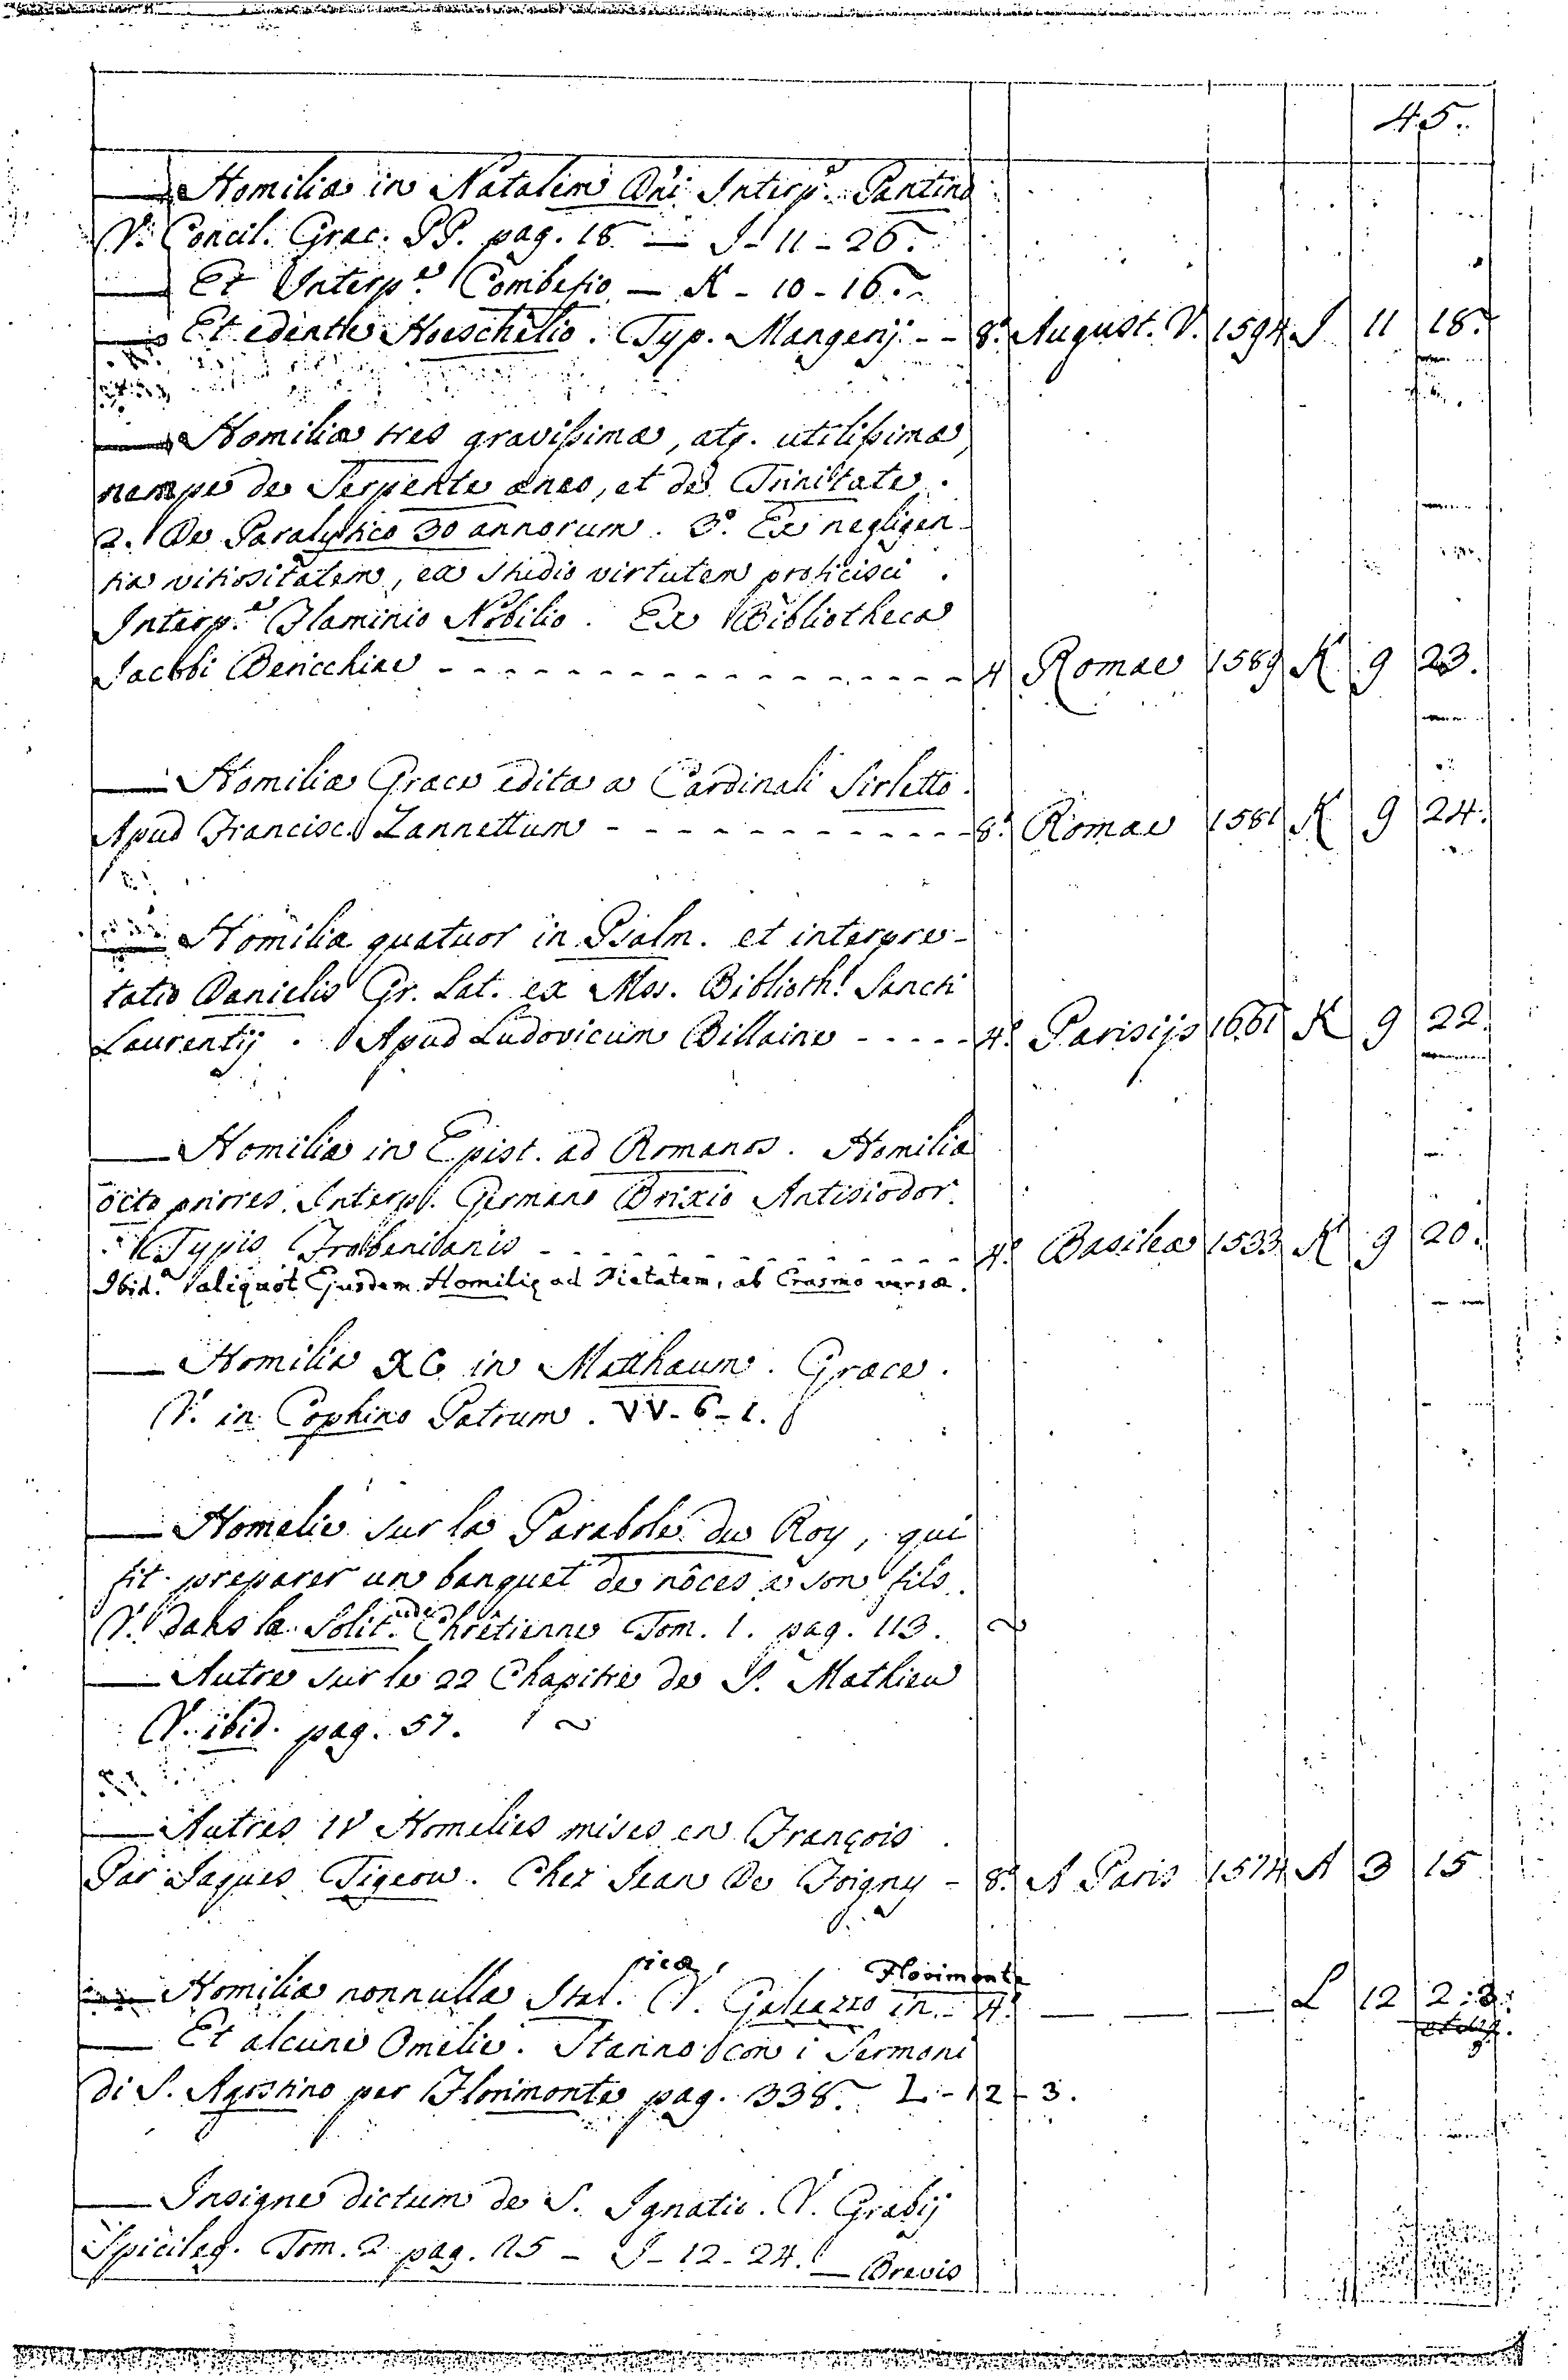 45.
— Homilia in Natalem Dni Interp.e Pantino
V. Concil. Græc. PP. pag. 18. — J - 11 - 26.
— Et Interp.e Combefio — K - 10 - 16.
— Et edente Hoeschelio. Typ. Mangerij - - 8.° August. V. 1594 J 11 18.
— Homiliæ tres gravissimæ, atq. utilissimæ,
nempe de Serpente æneo, et de Trinitate.
2. De Paralytico 30 annorum. 3.° Ex negligen-
tia vitiositatem, ex studio virtutem proficisci.
Interp.e Flaminio Nobilio. Ex Bibliotheca
Jacobi Bericchiae - - - - - - - 4 Romae 1589 K 9 23.
— Homiliæ Græce editæ a Cardinali Sirletto.
Apud Francisc. Zannettum - - - - - - - 8.° Romae 1581 K 9 24.
— Homiliæ quatuor in Psalm. et interpre-
tatio Danielis Gr. Lat. ex Mss. Biblioth. Sancti
Laurentij. Apud Ludovicum Billaine - - - - - 4.° Parisijs 1661 K 9 22.
— Homiliæ in Epist. ad Romanos. Homiliæ
octo priores. Interp. Germano Brixio Antisiodor.
Typis Frobenianis - - - - - - - 4.° Basileæ 1533 K 9 20.
Ibid.m aliquot Ejusdem Homilię ad Pietatem, ab Erasmo versæ.
— Homiliæ XC in Matthæum. Græce.
V. in Cophino Patrum. VV - 6 - 1.
— Homelie sur la Parabole du Roy, qui
fit preparer un banquet de nôces a son fils.
V. dans la Solit.ude Chrêtienne Tom. 1. pag. 113.
— Autre sur le 22 Chapitre de S. Mathieu
V. ibid. pag. 57.
— Autres IV Homelies mises en François.
Par Jaques Tigeou. Chez Jean De Foigny - 8.° A Paris 1574 A 3 15
— Homiliæ nonnullæ Ital.icæ, V. Galeazzo Florimonte in - 4.° — — — L 12 2:3.
— Et alcune Omelie. Stanno con i Sermoni
di S. Agostino per Florimonte pag. 338. L - 12 - 3.
— Insigne dictum de S. Ignatio. V. Grabij
Spicileg. Tom. 2 pag. 15 - J - 12 - 24.
— Brevis